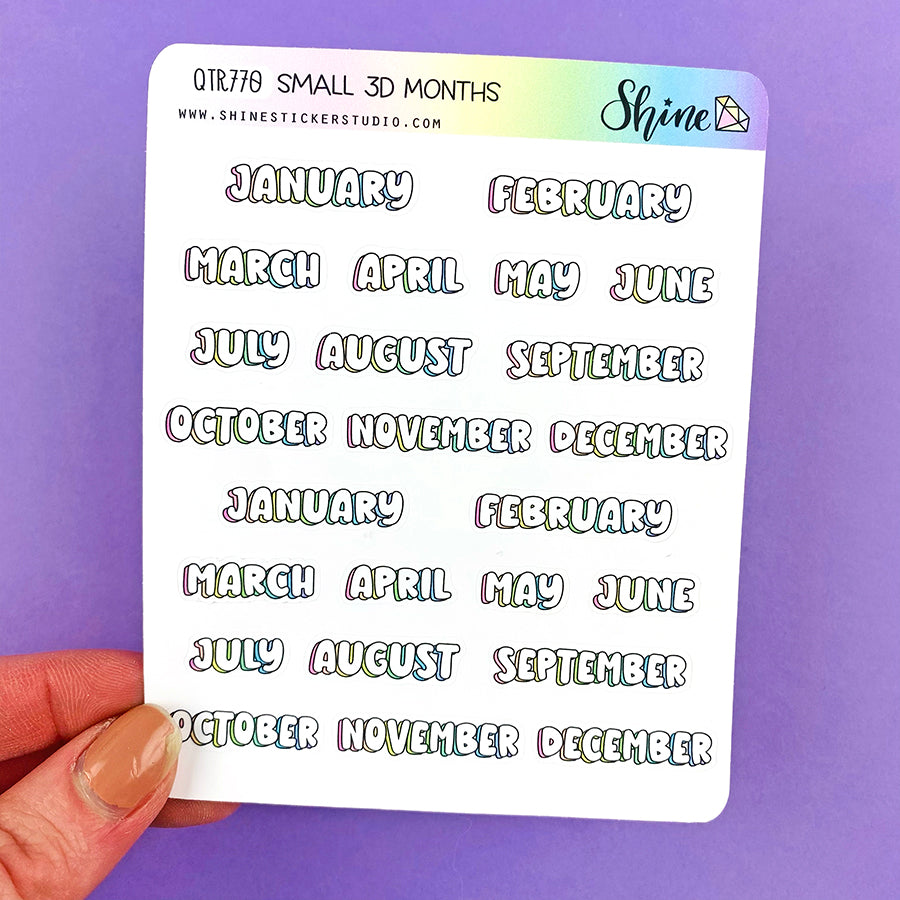 QTR770 SMALL 3D MONTHS
WWW.SHINESTICKERSTUDIO.COM
Shine
JANUARY FEBRUARY
MARCH APRIL MAY JUNE
JULY AUGUST SEPTEMBER
OCTOBER NOVEMBER DECEMBER
JANUARY FEBRUARY
MARCH APRIL MAY JUNE
JULY AUGUST SEPTEMBER
OCTOBER NOVEMBER DECEMBER